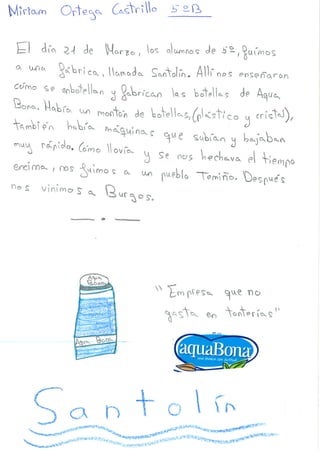 Miriam Ortega Castrillo 5ºB
El día 21 de Marzo, los alumnos de 5º, fuimos
a una fábrica, llamada Santolín. Allí nos enseñaron
cómo se enbotellan y fabrican las botellas de Aqua
Bona. Había un montón de botellas, (plástico y cristal),
también había máquinas que subían y bajaban
muy rápido. Cómo llovía y se nos hechava el tiempo
encima, nos fuimos a un pueblo Temiño. Después
nos vinimos a Burgos.
Aqua Bona
"Empresa que no
gasta en tonterías"
aquaBona
Santolín